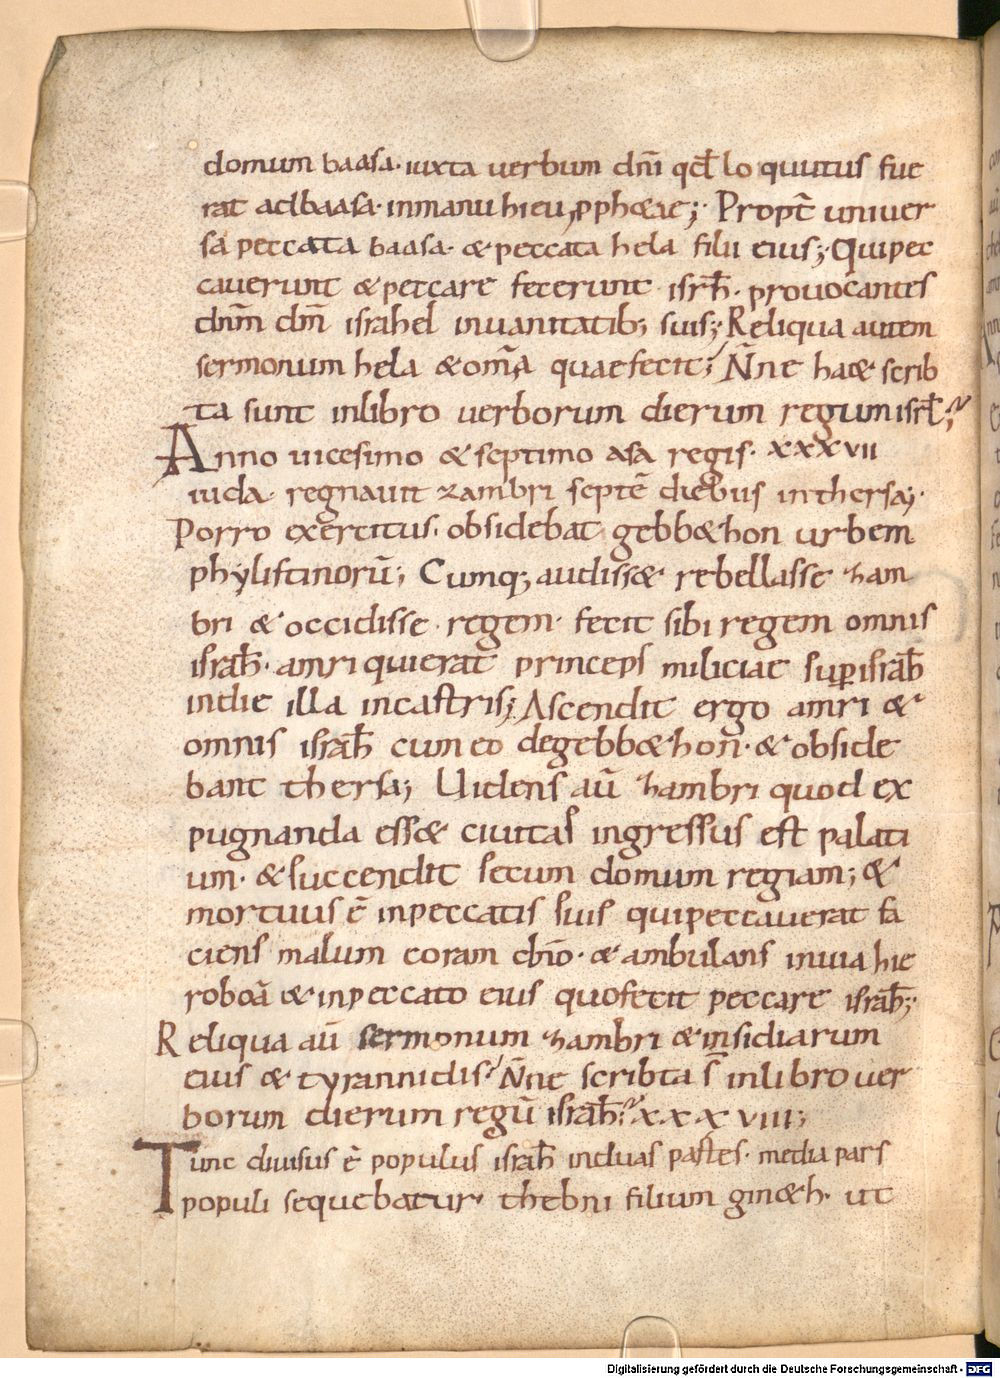 domum baasa· iuxta uerbum dnī qd̄ locutus fue
rat adbaasa· inmanu hieu, pphetae; Propt̄ uniuer
sa peccata baasa· & peccata hela filii eius; Quipec
cauerunt & peccare fecerunt isrh̄· prouocantes
dnm̄ dm̄ israhel inuanitatib; suis; Reliqua autem
sermonum hela & om̄a quaefecit; N̄ne haec scrib
ta sunt inlibro uerborum dierum regum isrl̄;
Anno uicesimo & septimo asa regis· xxxvii
iuda· regnauit zambri septē diebus inthersa;
Porro exercitus· obsidebat gebbethon urbem
phylistinorū; Cumq; audisset rebellasse zam
bri & occidisse regem· fecit sibi regem omnis
israh̄· amri quierat princeps miliciae sup̱israh̄
indie illa incastris; Ascendit ergo amri &
omnis israh̄ cum eo degebbethon· & obside
bant thersa; Uidens aū zambri quod ex
pugnanda esset ciuitas ingressus est palati
um· & succendit secum domum regiam; &
mortuus ē inpeccatis suis quipeccauerat fa
ciens malum coram dn̄o· & ambulans inuia hie
roboā & inpeccato eius quofecit peccare israh̄;
Reliqua aū sermonum zambri & insidiarum
eius & tyrannidis· N̄ne scribta s̄ inlibro uer
borum dierum regū israh̄· xxxviii;
Tunc diuisus ē populus israh̄ induas partes· media pars
populi sequebatur· thebni filium gineth· ut
Digitalisierung gefördert durch die Deutsche Forschungsgemeinschaft - DFG